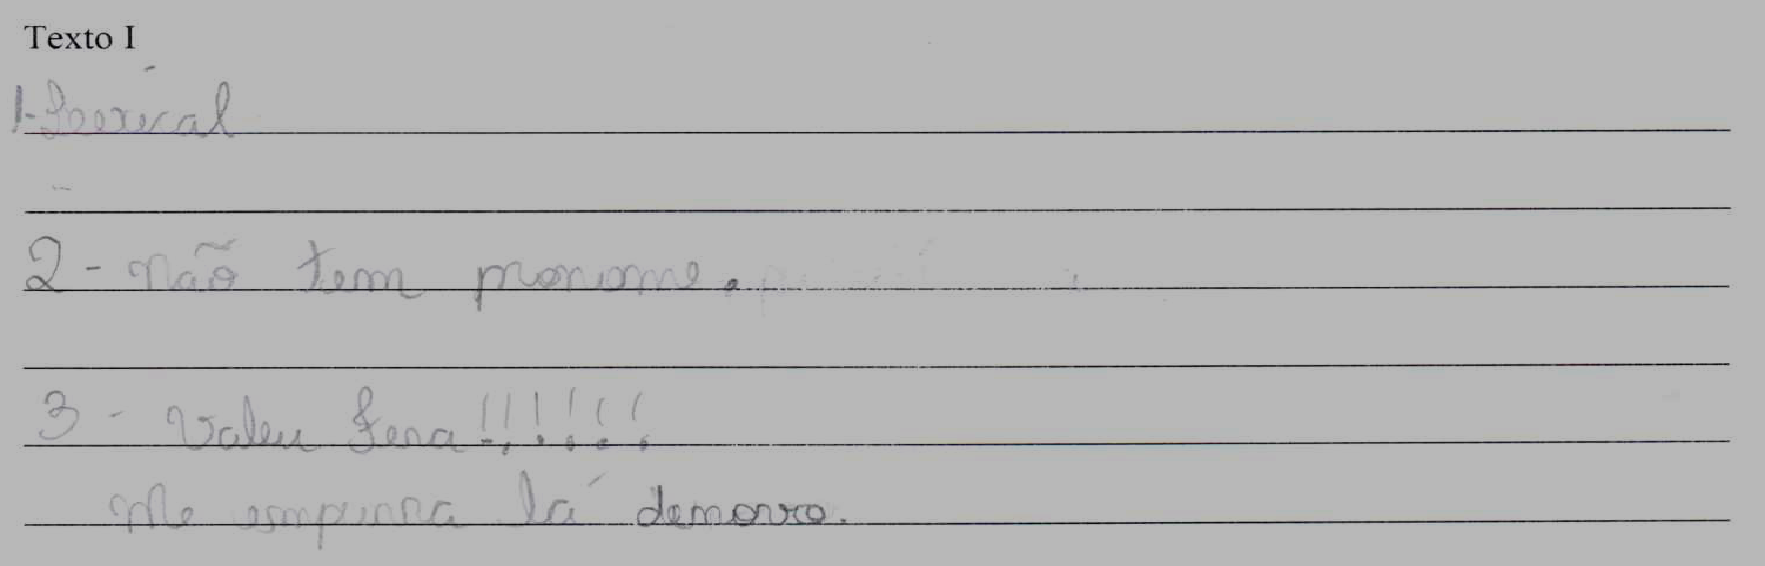 Texto I
1- Lexical
2 - não tem pronome.
3 - Valeu fera!!!!!!
Me empurra lá demorro.